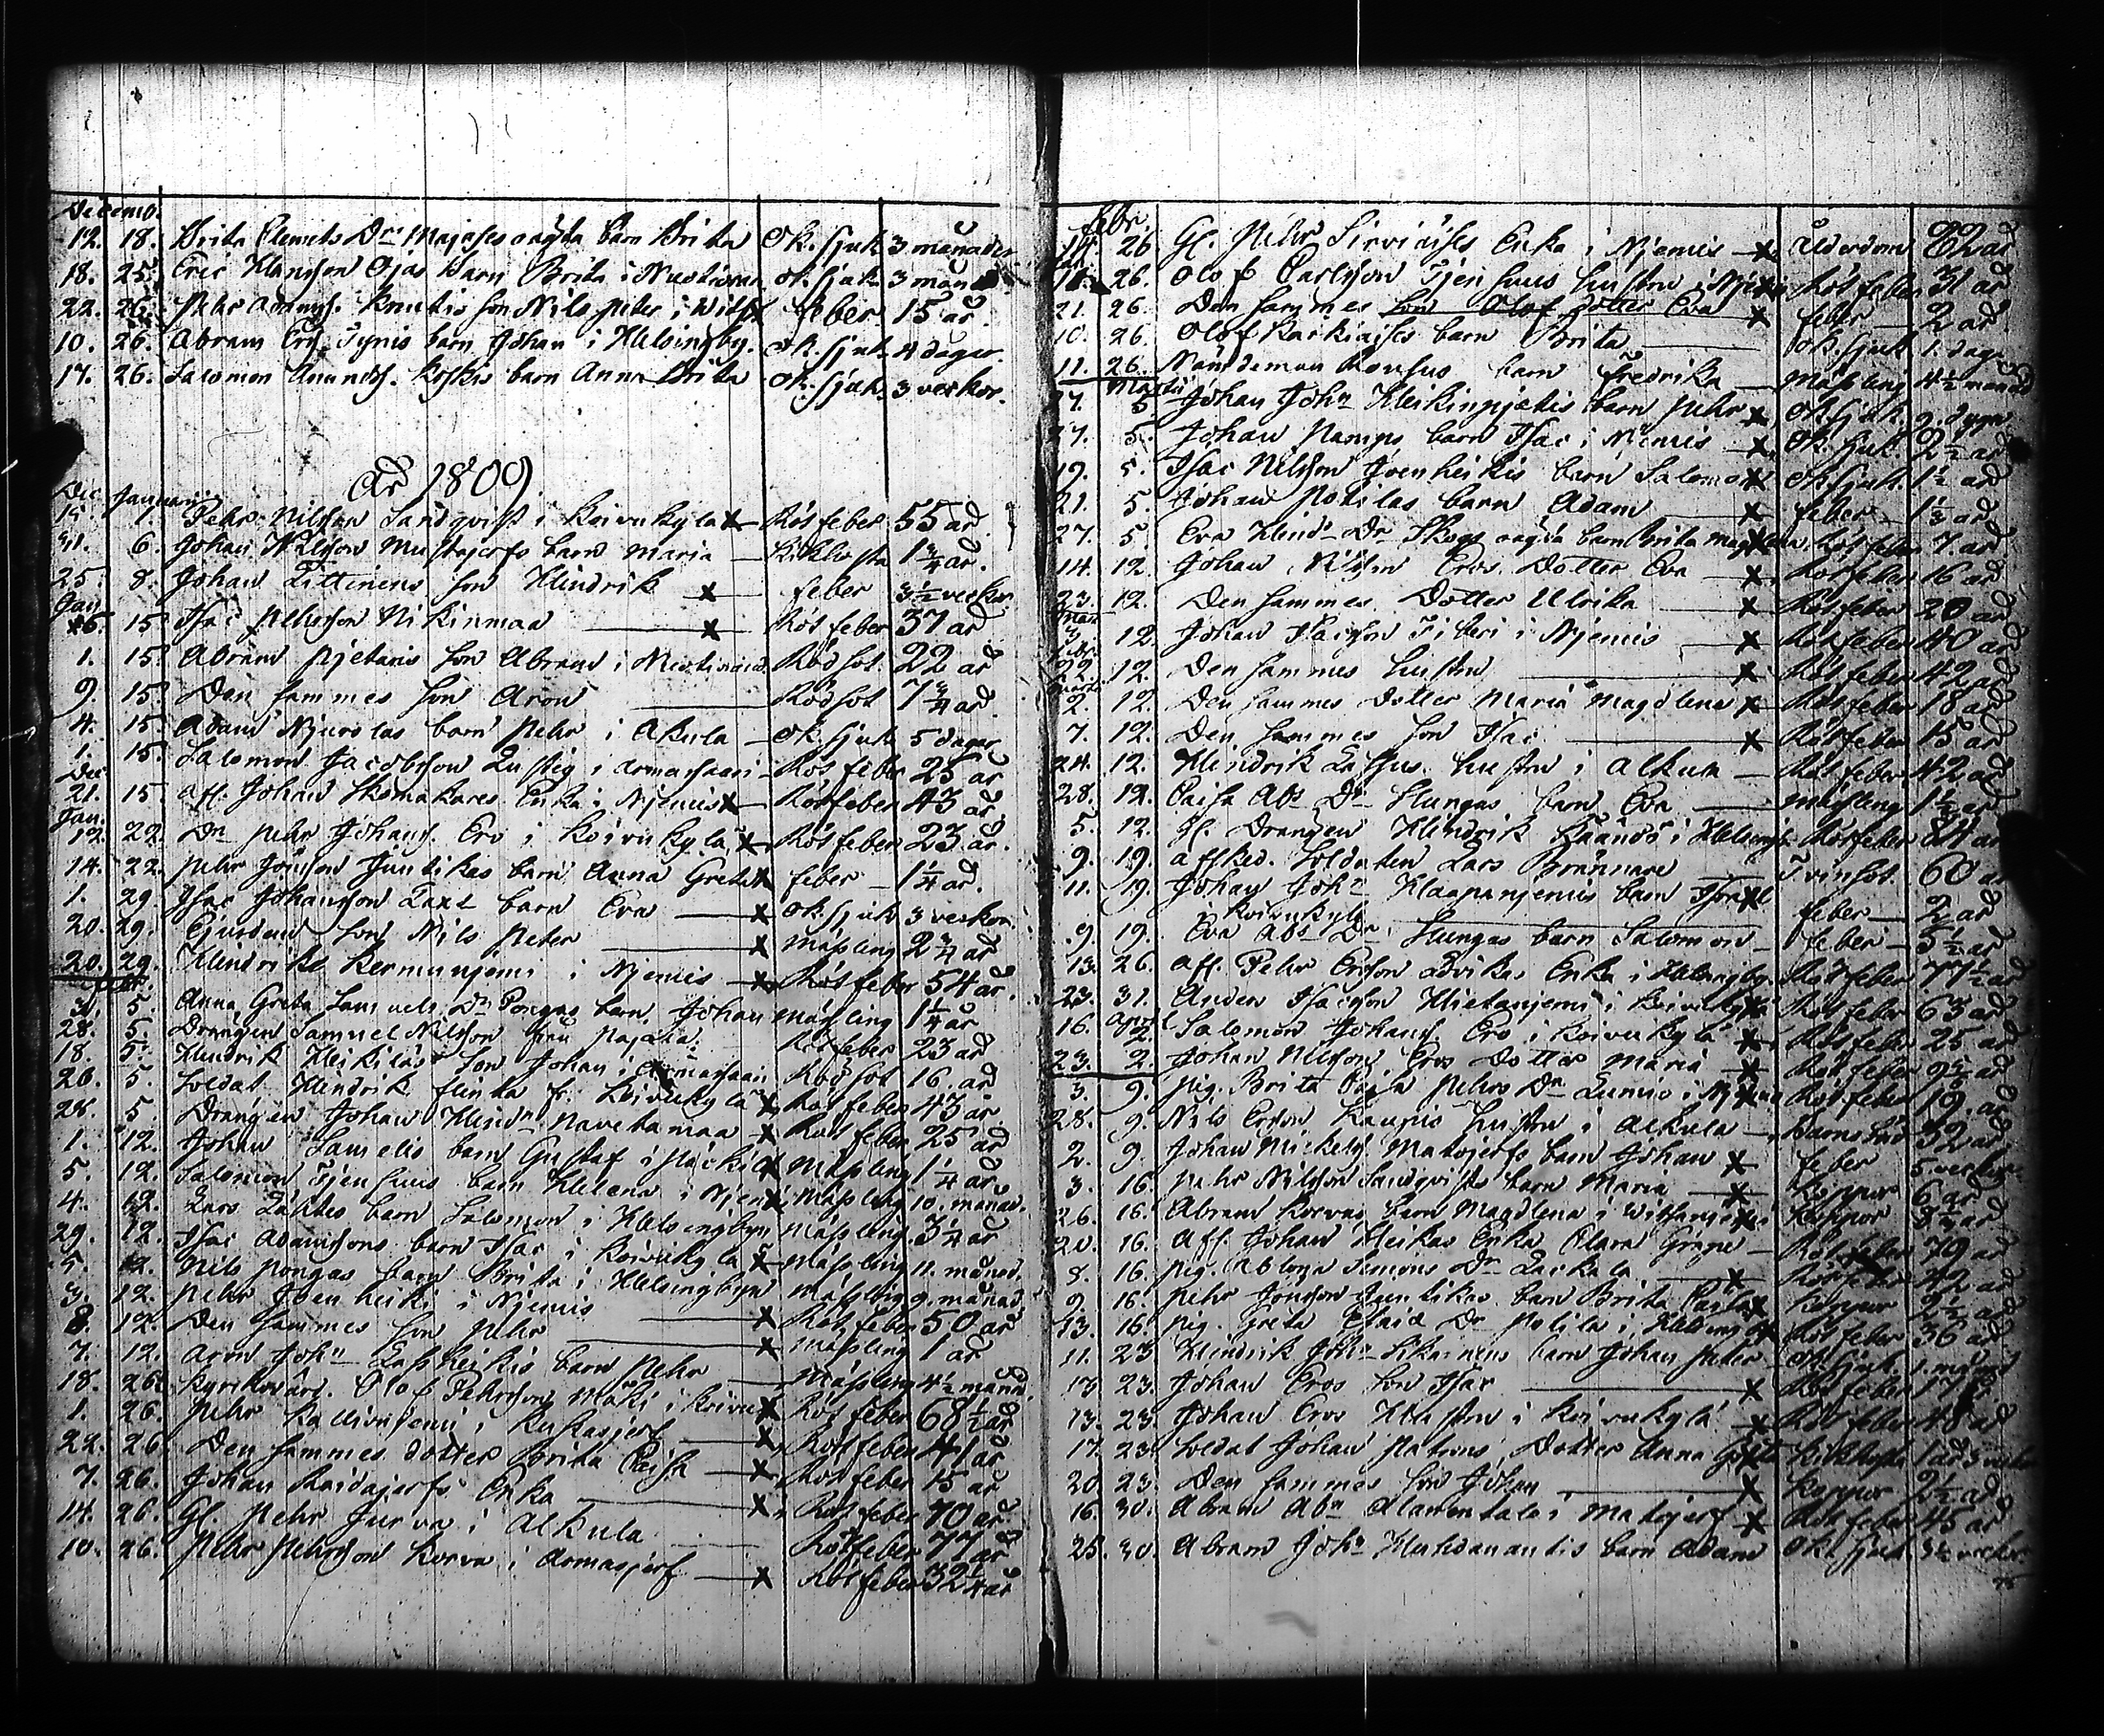 Decemb.
12. 18. Brita Clemets Dr. Majafes oägta barn Brita ok. sjuk 3 månader
18. 25. Eric Hansson Ojas barn Brita i ok. sjuk. 3 mån
22. 26. Pehr Adamss. Knutis son Nils Peter i feber 15 år.
10. 26. Abram Ers. Tynis barn Johan i Helsingby. ok. sjuk. 4 dagar.
17. 26. Salomon Amundss. Koskis barn Anna Brita ok. sjuk. 3 veckor.
År 1809
Dec. Januari
15. 1. Pehr Nilsson Sandqvist i Koivukyla x Röt feber 55 år.
31. 6. Johan Nilsson Mustajerfs barn Maria — Kikhosta 1 3/4 år.
25. 8. Johan Littinens son Hindrik x feber 3 1/2 veckor
Jan.
15. Isac Pehrsson Nikinmaa x Röt feber 37 år
1. 15. Abram Pjetaris son Abram i Rödsot 22 år
9. 15. Den sammes son Aron Rödsot 7 3/4 år.
4. 15. Adam Njurolas barn Pehr i Akula — ok. sjuk 5 dagar
1. 15. Salomon Jacobsson Lustig i Armassaari Röt feber 25 år
Dec.
21. 15. afl. Johan Skomakares Enka i Njemis x Rötfeber 43 år.
Jan.
12. 22. Dn Pehr Johanss. Ero i Koivukyla x Röt feber 23 år.
14. 22. Pehr Jönsson Juntikas barn Anna Greta x feber 1 1/4 år.
1. 29. Isac Johansson Laxs barn Eva x ok. sjuk 3 veckor.
20. 29. son Nils Peter x Mässling 2 3/4 år
20. 29. Hindriks Kermunjemi i Njemis x Röt feber 54 år.
3. 5. Anna Greta Samuels Dr. Pongas barn Johan Mässling 1 1/4 år
28. 5. Drängen Samuel Nilsson från Pajala. Röt feber 23 år
18. 5. Hindrik Heikiläs son Johan i Armassaari Rödsot 16. år
26. 5. Soldat Hindrik Flinta fr. Koivukyla x Röt feber 43 år
28. 5. Drängen Johan Hindn. Navetamaa x Röt feber 25 år
1. 12. Johan Samelis barn Gustaf i x Mässling 1 1/4 år
5. 12. Salomon Tjenhuus barn Helena i Njemis Mässling 10. månad.
4. 12. Lars Lahtes barn Salomon i Helsingbyn Mässling. 3 1/4 år
29. 12. Isac Adamssons barn Isac i Koivukyla x Mässling 11. månad.
5. 12. Nils Pongas barn Brita i Helsingbyn Mässling 9. månad
3. 12. Pehr Joenheiki i Njemis x Röt feber 50 år
8. 12. Den sammes son Pehr x Mässling 1 år
7. 12. Aron John. Lassheikis barn Pehr — Mässling 4 1/2 månad.
18. 26. Kyrkovärd. Olof Pehrsson Mäki i Koivu x Röt feber 68 1/2 år
1. 26. Pehr Kallioniemi i Kukasjerf x Röt feber 41 år
22. 26. Den sammes dotter Brita Caisa x Röt feber 15 år
7. 26. Johan Raidajerfs Enka x Röt feber 70 år
14. 26. Gl. Pehr Jurva i Alkula Rötfeber 77 år
10. 26. Pehr Pehrsson Korva i Armasjerf x Röt feber 32 1/4 år
Febr.
26 Gl. Pehr Sirviäises Enka i Njemis x Ålderdom 82 år
26. Olof Carlsson Tjenhuus hustru i Njemis Röt feber 31 år
21. 26. Den sammes dotter Eva x feber 2 år
10. 26. Olof Karkiaises barn Brita — ok. sjuk 1. dag
11. 26. Nämdeman Rousus barn Fredrika — Mässling 4 1/2 månad
Martii
27. 5 Johan John Heikinpjetis barn Pehr x ok. sjuk. 9. dygn
27. 5. Johan barn Isac i Njemis x ok. sjuk 2 1/2 år
19. 5. Isac Nilsson Joenheikis barn Salomon ok. sjuk. 1 1/2 år
21. 5. Johan Potilas barn Adam x feber 1 1/3 år
27. 5 Eva Hind. Dr. Skogs oägta barn Brita Magdlena Röt feber 7. år
14. 12. Johan Nilsson Eros Dotter Eva x Röt feber 16 år
23. 12. Den sammes Dotter Ulrika x Röt feber 20 år
Mart.
3. 12. Johan Isacsson Fiskeri i Njemis x Röt feber 40 år
Febr.
22. 12. Den sammes hustru x Röt feber 42 år
Martii
2. 12. Den sammes dotter Maria Magdlena x Röt feber 18 år
7. 12. Den sammes son Isac x Röt feber 15 år
24. 12. Hindrik Lassus hustru i Alkula — Röt feber 42 år
28. 12. Caisa Abs. Dr Hungas barn Eva Mässling 1 1/2 år
5. 12. Gl. Drängen Hindrik i Helsingb. Rötfeber 84 år
9. 19. afsked. Soldaten Lars Brännare Tvinsot. 60 år
11. 19. Johan John. Haapanjemis barn Israel i Koivukyla feber 2 år
9. 19. Eva Abs Dr. Hungas barn Salomon feber 5 1/2 år
13. 26. Afl. Pehr Ersson Enka i Helsingby. Röt feber 77 1/2 år
23. 31. Anders Isacsson Hietanjemi i Koivukyla Röt feber 63 år
April
16. 2. Salomon Johanss. Ero i Koivukyla x Röt feber 25 år
23. 2. Johan Nilsson Eros Dotter Maria x Röt feber 9 år
3. 9. Pig. Brita Caisa Pehrs Dr. Lumio i Njemis Röt feber 19. år
28. 9. Nils Ersson Kaupis hustru i Alkula — Barnsbörd 32 år
2. 9. Johan Mickelss. Matojerfs barn Johan x feber 5 veckor
3. 16. Pehr Nilsson Sandqvists barn Maria x Koppor 6 år
26. 16. Abram Korvas barn Magdlena i Koppor år
20. 16. Afl. Johan Heikas Enka Clara Greta — Röt feber 79 år
8. 16. Pig. Simons Dr. x Röt feber 42 år
9. 16. Pehr Jönsson Juntikas barn Brita Caisa x Koppor 2 1/2 år
13. 16. Pig. Greta Dr Potila i Helsingby Röt feber 36 år
11. 23 Hindrik John. barn Johan Peter ok. sjuk. 1. månad
13 23. Johan Eros son Isac x Röt feber 17 år
13. 23. Johan Eros Hustru i Koivukyla x Röt feber 48 år
17. 23. Soldat Johan Patrons Dotter Anna Greta Kikhosta 1 år 3 veckor
20. 23. Den sammes son Johan x Koppor 2 1/2 år
16. 30. Abram Abn. Alamentalo i Matojerf x Röt feber 45 år
25. 30. Abram John. barn Adam ok. sjuk. 3 1/2 veckor